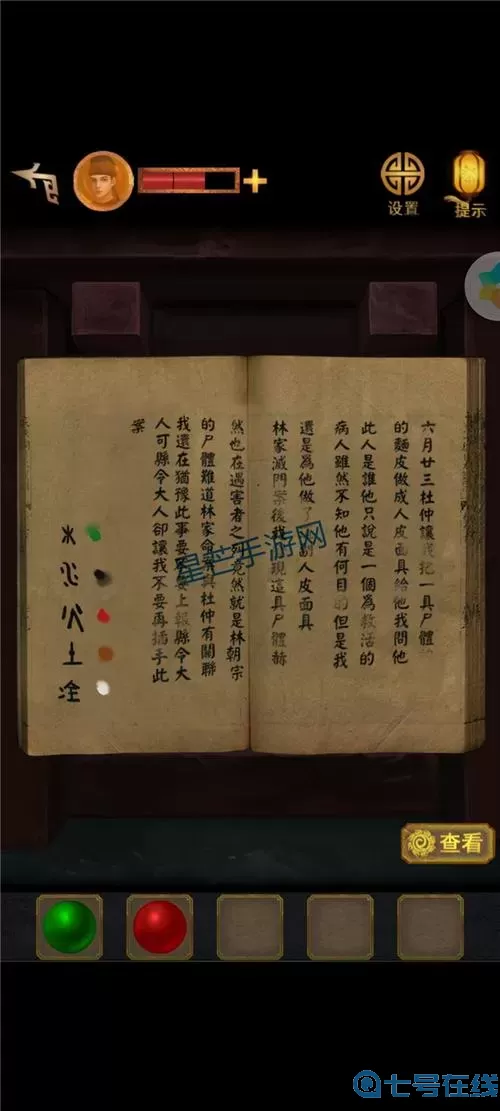 设置
提示
六月廿三杜仲讓我把一具尸體
的麵皮做成人皮面具給他我問他
此人是誰他只說是一個為救活的
病人雖然不知他有何目的但是我
還是為他做了一副人皮面具
林家滅門案後我發現這具尸體赫
然也在遇害者之列竟然就是林朝宗
的尸體難道林家命案與杜仲有關聯
我還在猶豫此事要不要上報縣令大
人可縣令大人卻讓我不要再插手此
案
木
水
火
土
金
星芒手游网
查看
七号在线